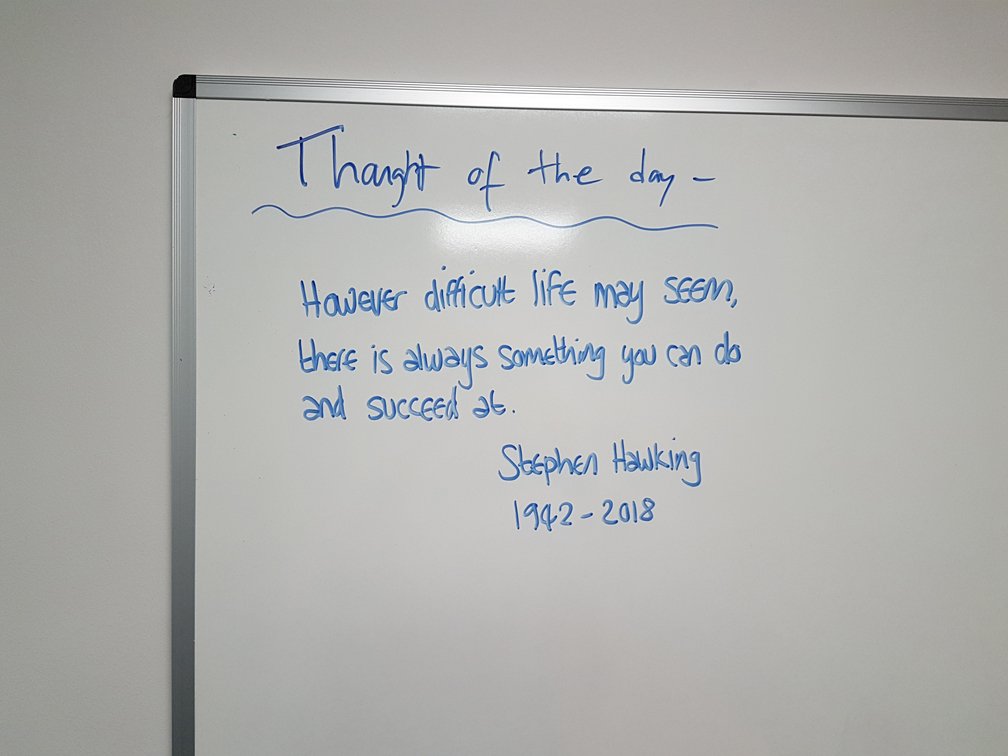 Thought of the day -
However difficult life may seem,
there is always something you can do
and succeed at.
Stephen Hawking
1942-2018